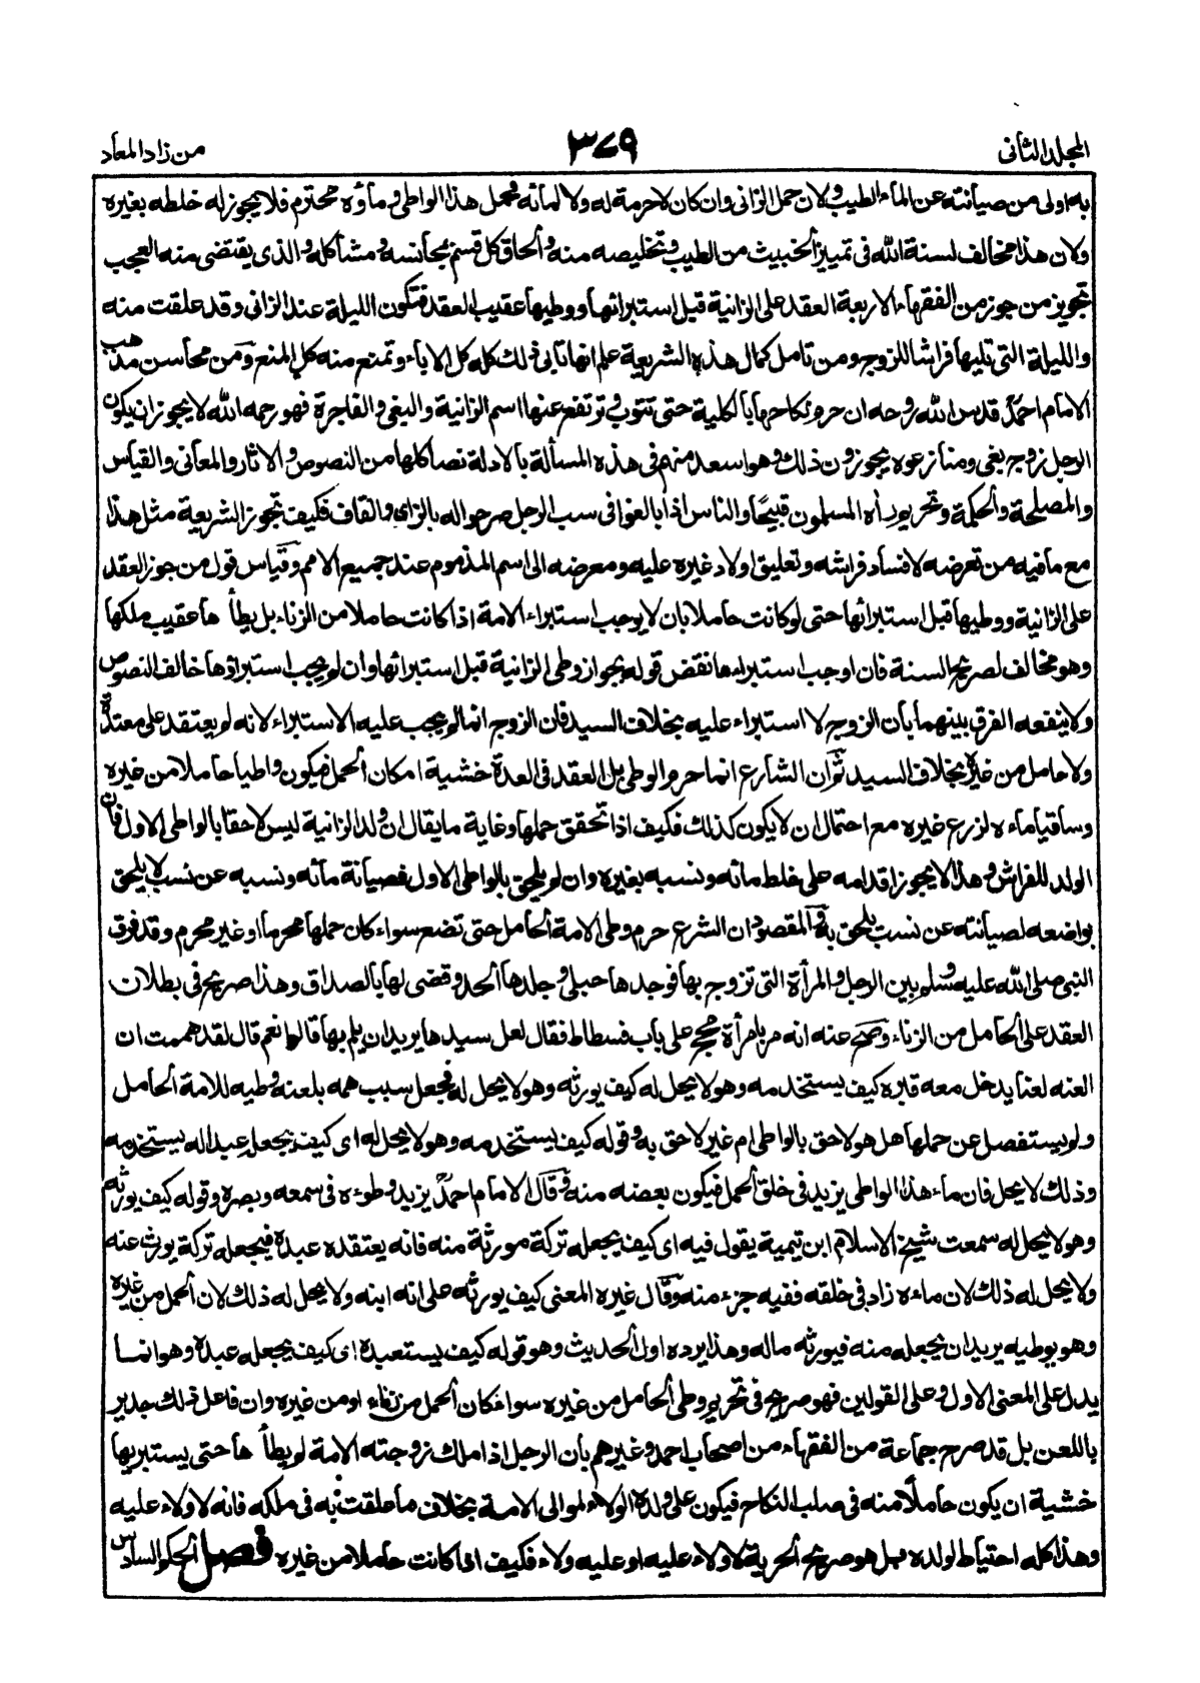 المجلد الثانی
٣٧٩
من زاد المعاد
به اولی من صیانته عن الماء الطیب ولان حمل الزانی وان کان لاحرمة له ولا لمائه فحمل هذا الواطی وماؤه محترم فلا یجوز له خلطه بغیره
ولان هذا مخالف لسنة الله فی تمییز الخبیث من الطیب وتخلیصه منه والحاق کل قسم بمجانسه ومشاکله والذی یقتضی منه العجب
تجویز من جوز من الفقهاء الاربعة العقد علی الزانیة قبل استبرائها ووطیها عقیب العقد فتکون اللیلة عند الزانی وقد علقت منه
واللیلة التی تلیها فراشا للزوج ومن تامل کمال هذه الشریعة علم انها تابی ذلك کله کل الاباء وتمنع منه کل المنع ومن محاسن مذهب
الامام احمد قدس الله روحه ان حرم نکاحها بالکلیة حتی تتوب وترتفع عنها اسم الزانیة والبغی والفاجرة فهو رحمه الله لا یجوز ان یکون
الرجل زوج بغی ومنازعوه یجوزون ذلك وهو اسعد منهم فی هذه المسألة بالادلة نصا کلها من النصوص والاثار والمعانی والقیاس
والمصلحة والحکمة وتحریم ما رأه المسلمون قبیحا والناس اذا بالغوا فی سب الرجل صرحوا له بالزای والقاف فکیف تجوز الشریعة مثل هذا
مع ما فیه من تعرضه لافساد فراشه وتعلیق اولاد غیره علیه ومعرضه الی اسم المذموم عند جمیع الامم وقیاس قول من جوز العقد
علی الزانیة ووطیها قبل استبرائها حتی لو کانت حاملا بان لا یوجب استبراء الامة اذا کانت حاملا من الزناء بل یطأ ها عقیب ملکها
وهو مخالف لصریح السنة فان اوجب استبراءها نقض قوله بجواز وطی الزانیة قبل استبرائها وان لم یجب استبراؤها خالف النصوص
ولا ینفعه الفرق بینهما بأن الزوج لا استبراء علیه بخلاف السید فان الزوج انما لم یجب علیه الاستبراء لانه لم یعتقد علی معتدة
ولا حامل من غیره بخلاف السید ثم ان الشارع انما حرم الوطی بل العقد فی العدة خشیة امکان الحمل فیکون واطیا حاملا من غیره
وساقیا ماءه لزرع غیره مع احتمال ان لا یکون کذلك فکیف اذا تحقق حملها وغایة ما یقال ان ولد الزانیة لیس لاحقا بالواطی الاول فان
الولد للفراش وهذا لا یجوز اقدامه علی خلط مائه ونسبه بغیره وان لم یلحق بالواطی الاول فصیانة مائه ونسبه عن نسب لا یلحق
بواضعه لصیانته عن نسب یلحق به والمقصود ان الشرع حرم وطی الامة الحامل حتی تضع سواء کان حملها محرما او غیر محرم وقد فرق
النبی صلی الله علیه وسلم بین الرجل والمرأة التی تزوج بها فوجدها حبلی وجلدها الحد وقضی لها بالصداق وهذا صریح فی بطلان
العقد علی الحامل من الزناء وصح عنه انه مر بامرأة مجح علی باب فسطاط فقال لعل سیدها یرید ان یلم بها قالوا نعم قال لقد هممت ان
العنه لعنا یدخل معه قبره کیف یستخدمه وهو لا یحل له کیف یورثه وهو لا یحل له فجعل سبب همه بلعنه وطیه للامة الحامل
ولم یستفصل عن حملها هل هو لاحق بالواطی ام غیر لاحق به وقوله کیف یستخدمه وهو لا یحل له ای کیف یجعل عبدا له یستخدمه
وذلك لا یحل فان ماء هذا الواطی یزید فی خلق الحمل فیکون بعضه منه وقال الامام احمد یزید وطوءه فی سمعه وبصره وقوله کیف یورثه
وهو لا یحل له سمعت شیخ الاسلام ابن تیمیة یقول فیه ای کیف یجعله ترکة مورثة منه فانه یعتقده عبده فیجعله ترکة یورث عنه
ولا یحل له ذلك لان ماءه زاد فی خلقه ففیه جزء منه وقال غیره المعنی کیف یورثه علی انه ابنه ولا یحل له ذلك لان الحمل من غیره
وهو بوطیه یرید ان یجعله منه فیورثه ماله وهذا یرده اول الحدیث وهو قوله کیف یستعبده ای کیف یجعله عبده وهو انما
یدل علی المعنی الاول وعلی القولین فهو صریح فی تحریم وطی الحامل من غیره سواء کان الحمل من زناء او من غیره وان فاعل ذلك جدیر
باللعن بل قد صرح جماعة من الفقهاء من اصحاب احمد وغیرهم بأن الرجل اذا ملك زوجته الامة لم یطأ ها حتی یستبریها
خشیة ان یکون حاملا منه فی صلب النکاح فیکون علی ولده الولاء لموالی الامة بخلاف ما علقت به فی ملکه فانه لا ولاء علیه
وهذا کله احتیاط لولده هل هو صریح الحریة لا ولاء علیه او علیه ولاء فکیف اذا کانت حاملا من غیره فصل الحکم السادس